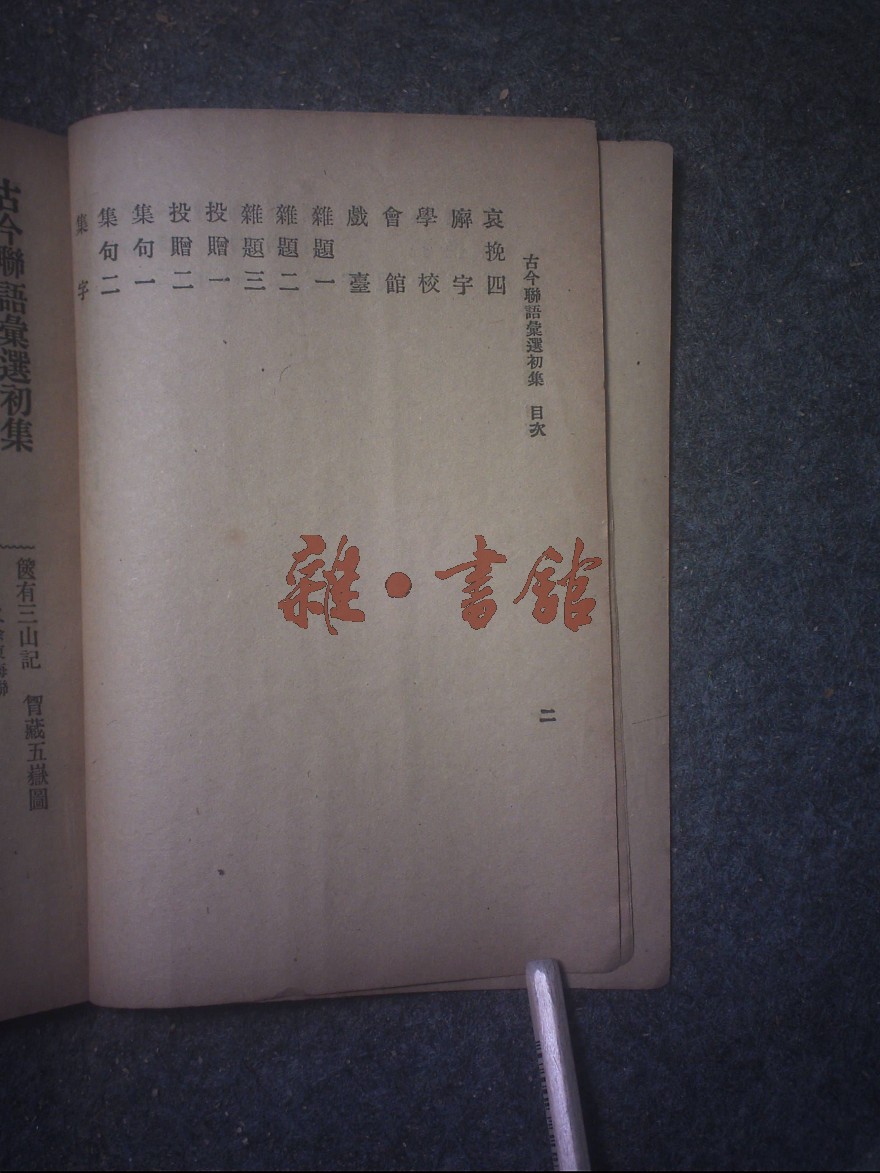 古今聯語彙選初集　目次
哀挽四
廨宇
學校
會館
戲臺
雜題一
雜題二
雜題三
投贈一
投贈二
集句一
集句二
集字
二
雜·書館
古今聯語彙選初集
篋有三山記　胷藏五嶽圖